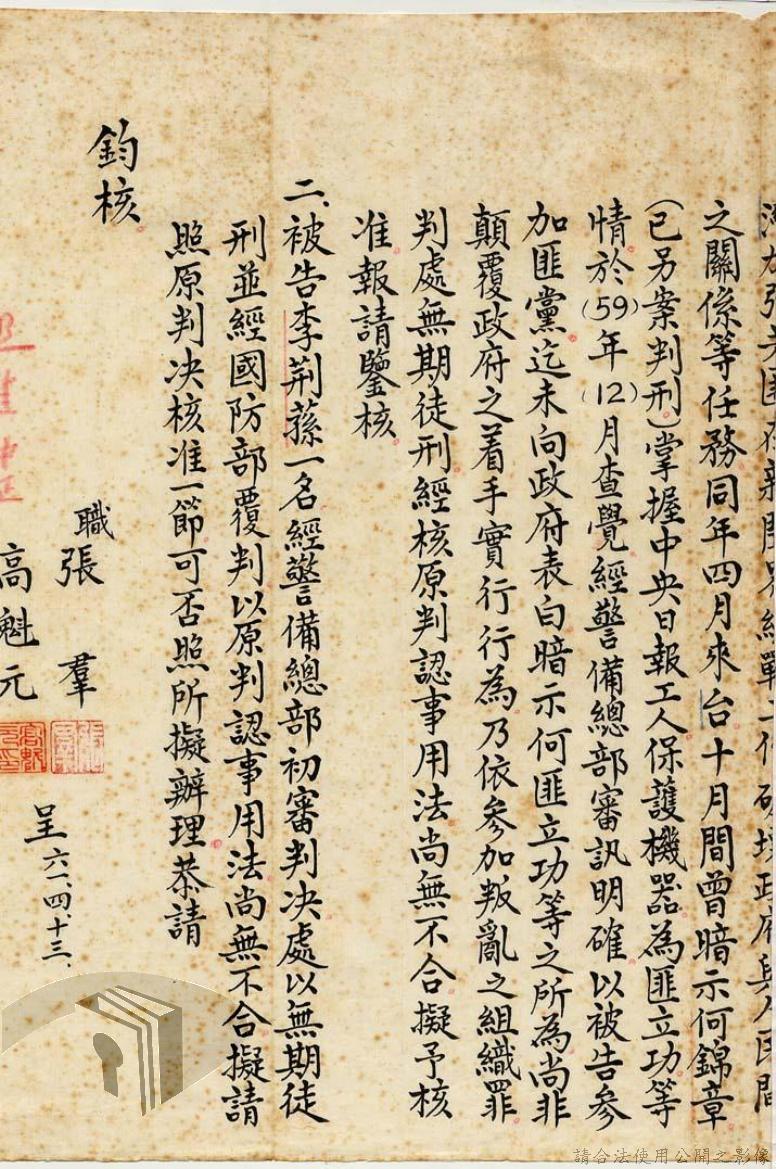 匪在新聞界統戰工作破壞政府與人民間
之關係等任務同年四月來台十月間曾暗示何錦章
(已另案判刑)掌握中央日報工人保護機器為匪立功等
情於(59)年(12)月查覺經警備總部審訊明確以被告參
加匪黨迄未向政府表白暗示何匪立功等之所為尚非
顛覆政府之着手實行行為乃依參加叛亂之組織罪
判處無期徒刑經核原判認事用法尚無不合擬予核
准報請鑒核
二、被告李荊蓀一名經警備總部初審判決處以無期徒
刑並經國防部覆判以原判認事用法尚無不合擬請
照原判決核准一節可否照所擬辦理恭請
鈞核
職張羣
高魁元
呈六一、四、十三、
請合法使用公開之影像